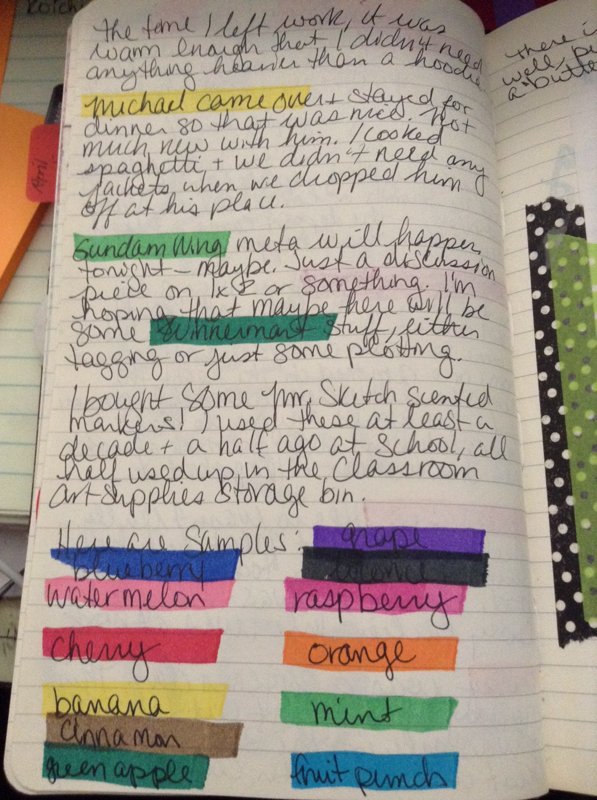 the time I left work, it was
warm enough that I didn't need
anything heavier than a hoodie.
Michael came over + stayed for
dinner so that was nice. Not
much new with him. I cooked
spaghetti + we didn't need any
jackets when we dropped him
off at his place.
Gundam Wing meta will happen
tonight – maybe. Just a discussion
piece on 1x2 or something. I'm
hoping that maybe there will be
some stuff, either
tagging or just some plotting.
I bought some Mr. Sketch scented
markers! I used these at least a
decade + a half ago at school, all
half used up in the classroom
art supplies storage bin.
Here are samples: grape
blueberry licorice
watermelon raspberry
cherry orange
banana mint
cinnamon
green apple fruit punch
April
there is
well, pu
a butte